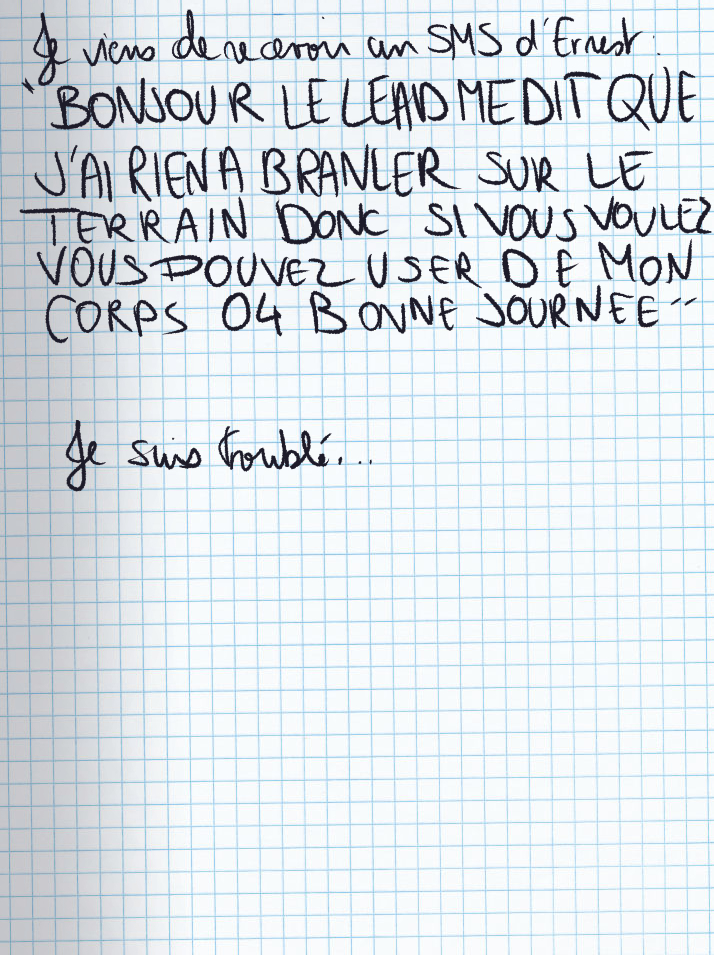 Je viens de recevoir un SMS d'Ernest :
"BONJOUR LE LEAD ME DIT QUE
J'AI RIEN A BRANLER SUR LE
TERRAIN DONC SI VOUS VOULEZ
VOUS POUVEZ USER DE MON
CORPS 04 BONNE JOURNEE"
Je suis troublé...